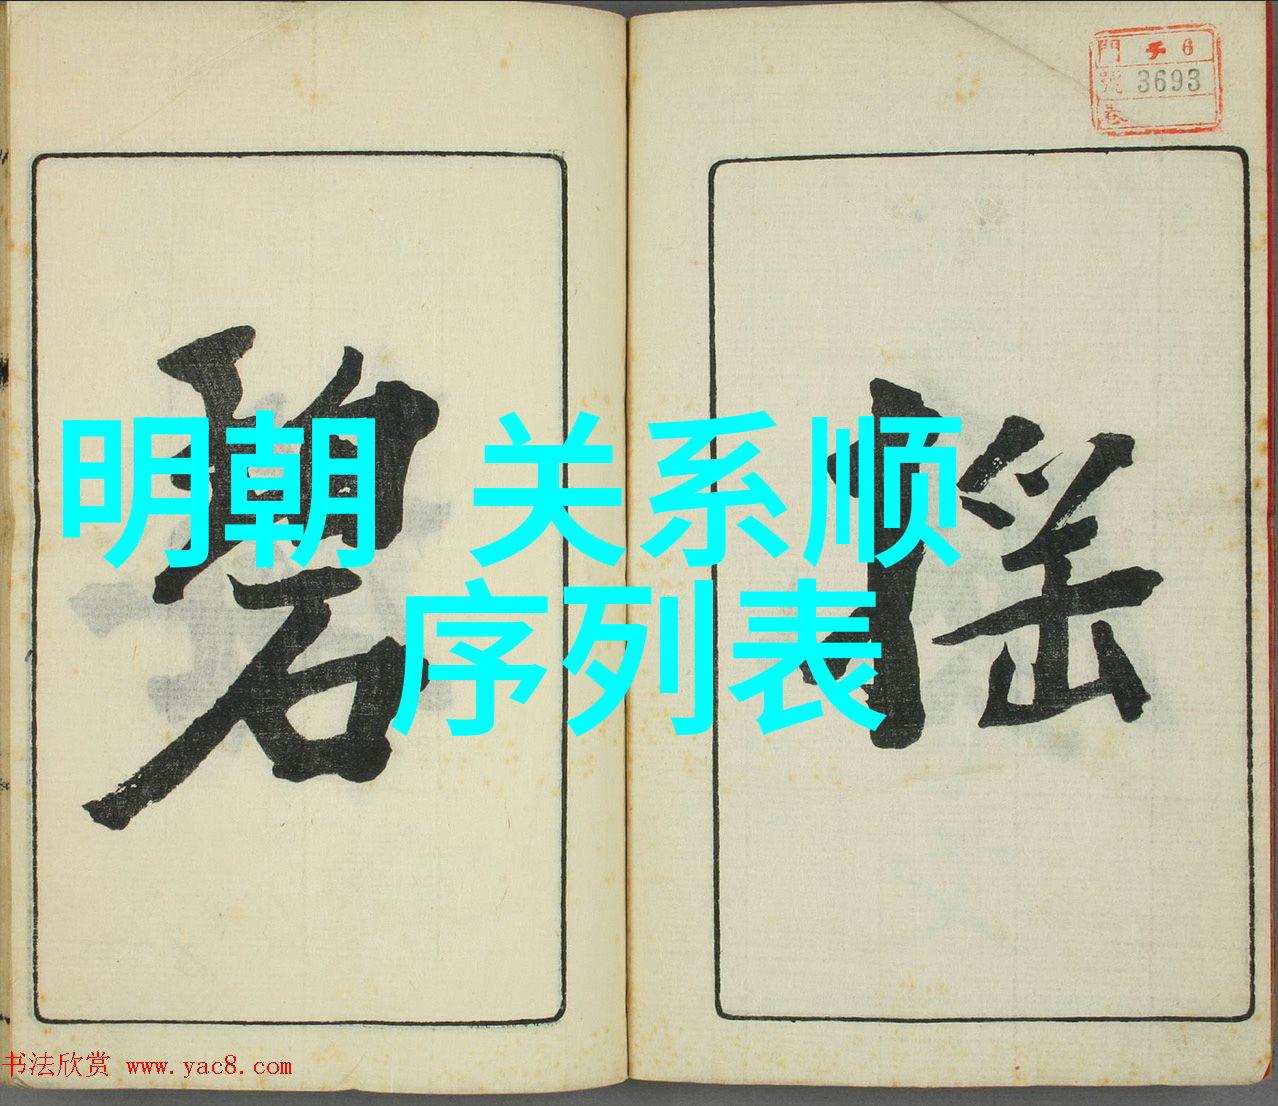 門 子 6
號 3693
卷
明朝 关系顺
序列表
碧
搖
书法欣赏 www.yac8.com